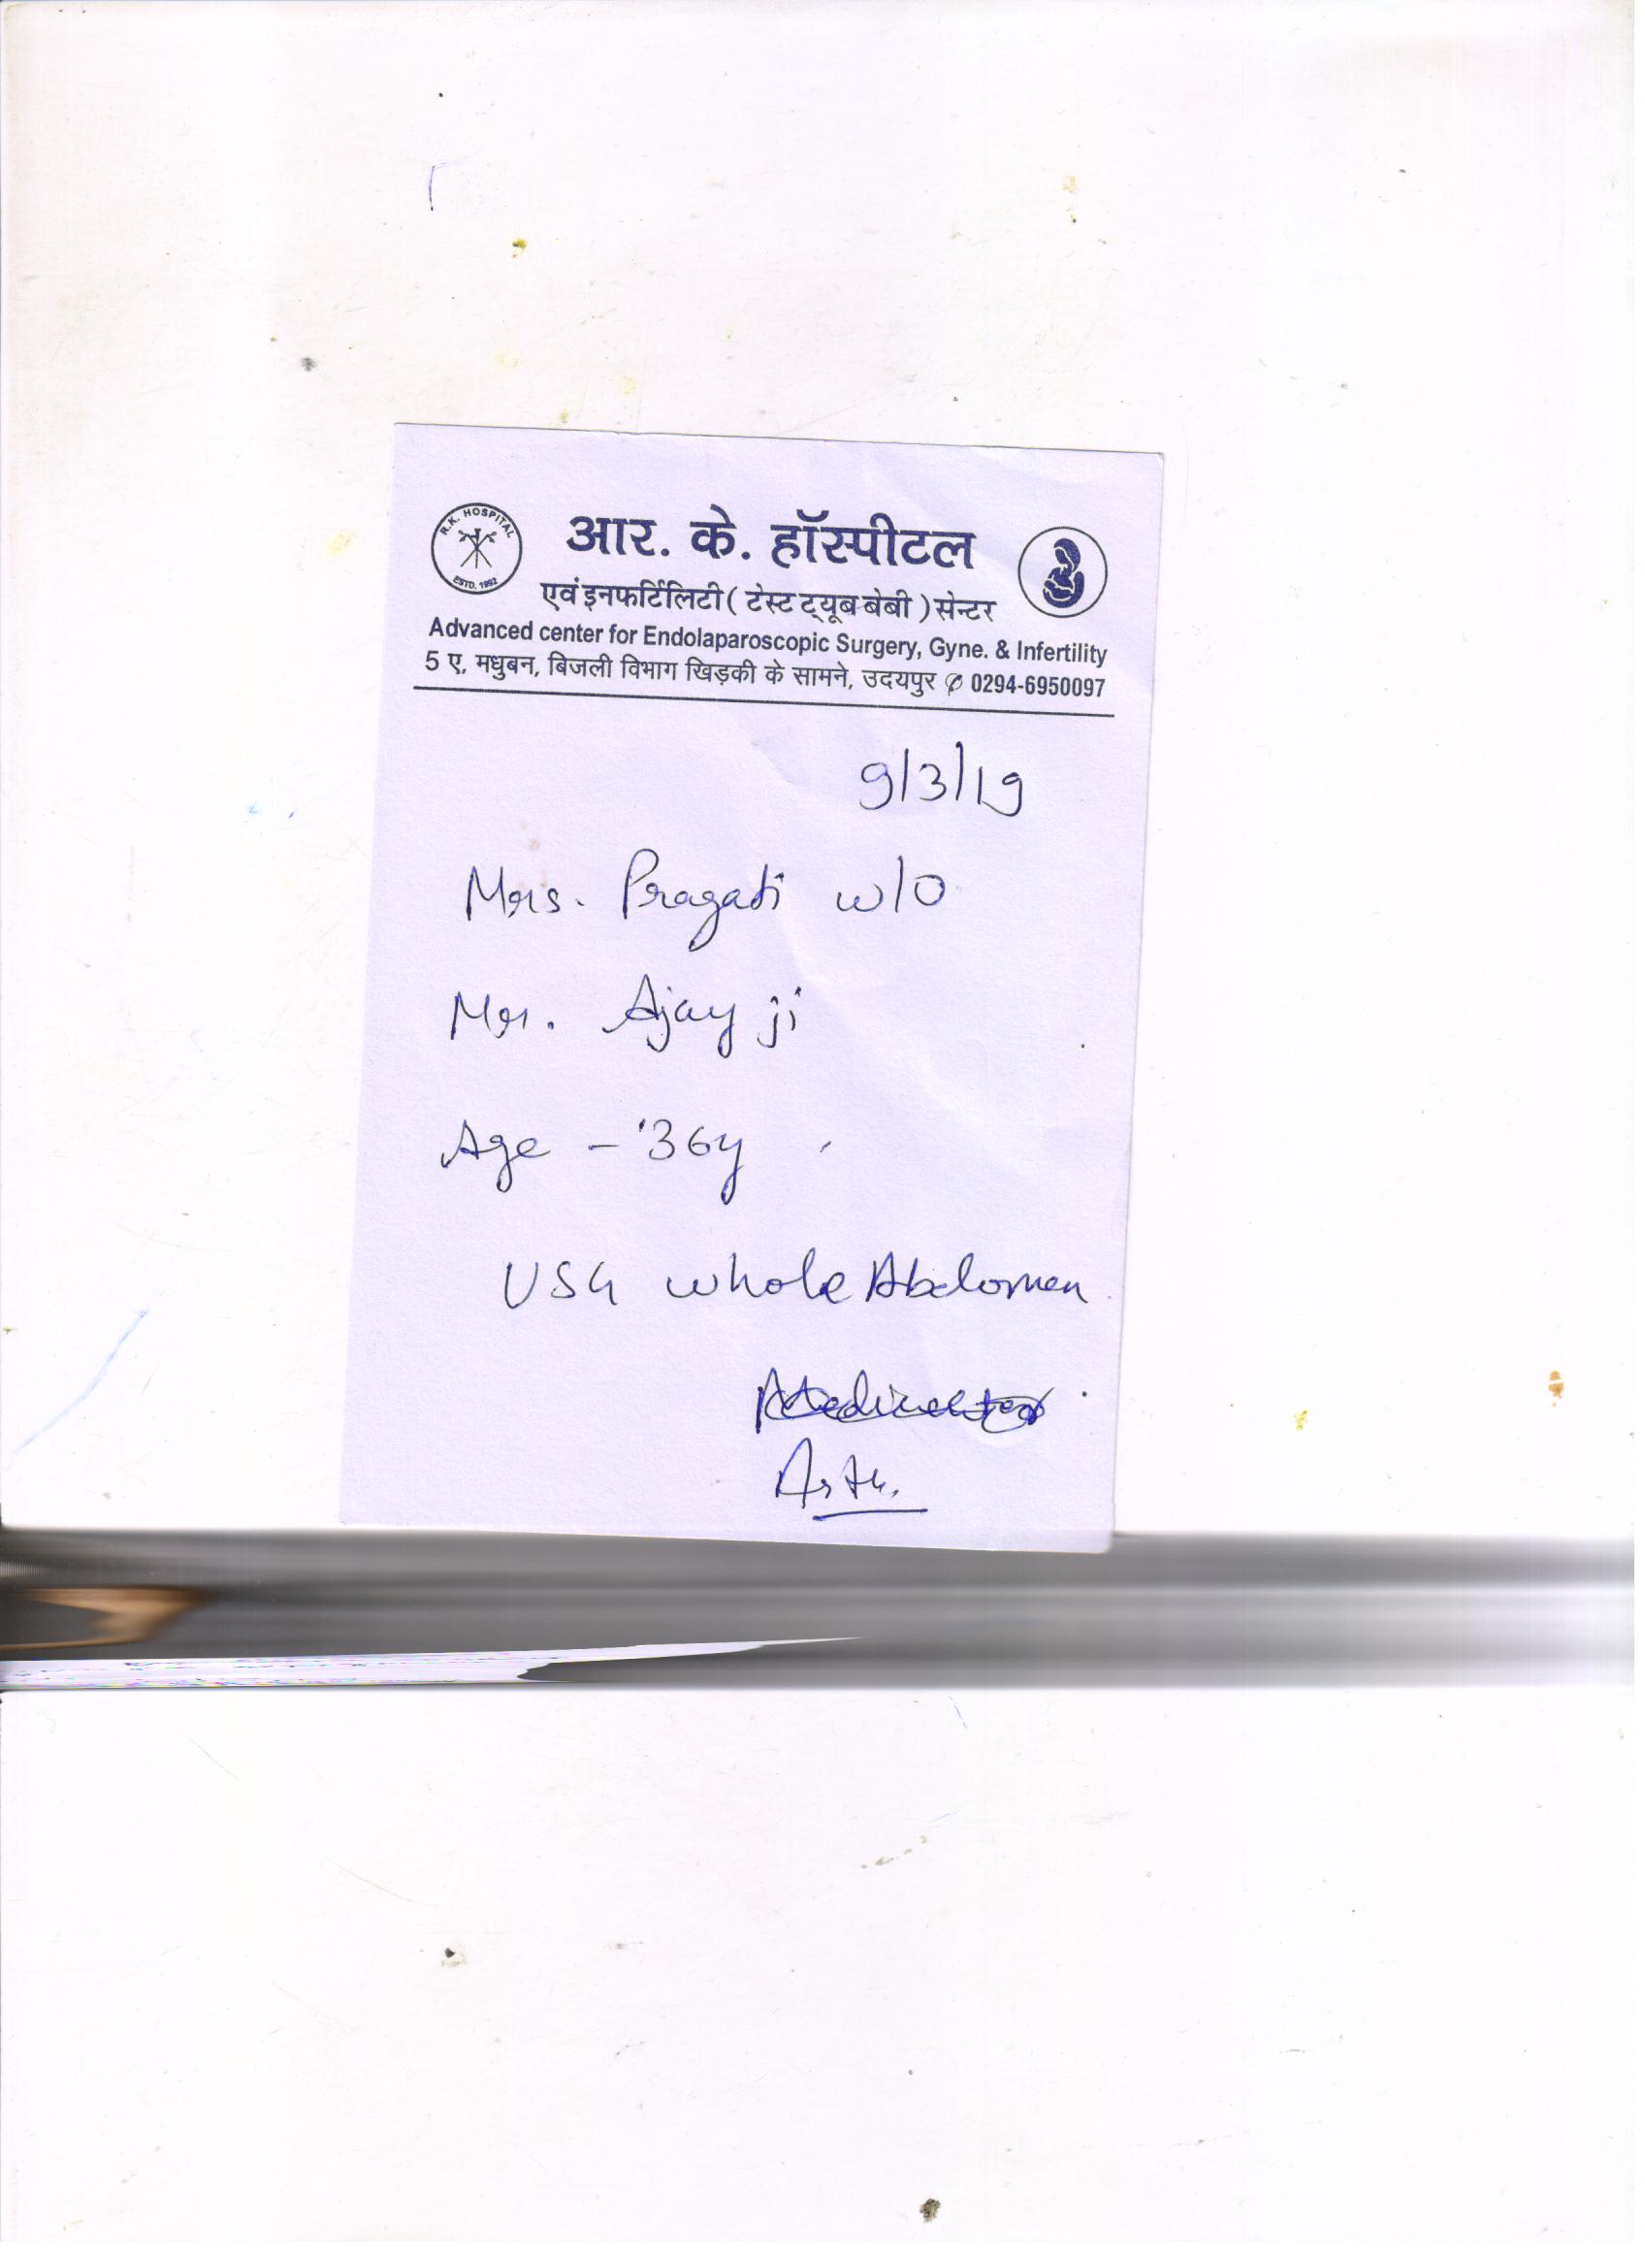 R.K. HOSPITAL
ESTD. 1992
आर. के. हॉस्पीटल
एवं इनफर्टिलिटी ( टेस्ट ट्यूब बेबी ) सेन्टर
Advanced center for Endolaparoscopic Surgery, Gyne. & Infertility
5 ए, मधुबन, बिजली विभाग खिड़की के सामने, उदयपुर ✆ 0294-6950097
9/3/19
Mrs. Pragati w/o
Mr. Ajay ji
Age - 36y
USG whole Abdomen